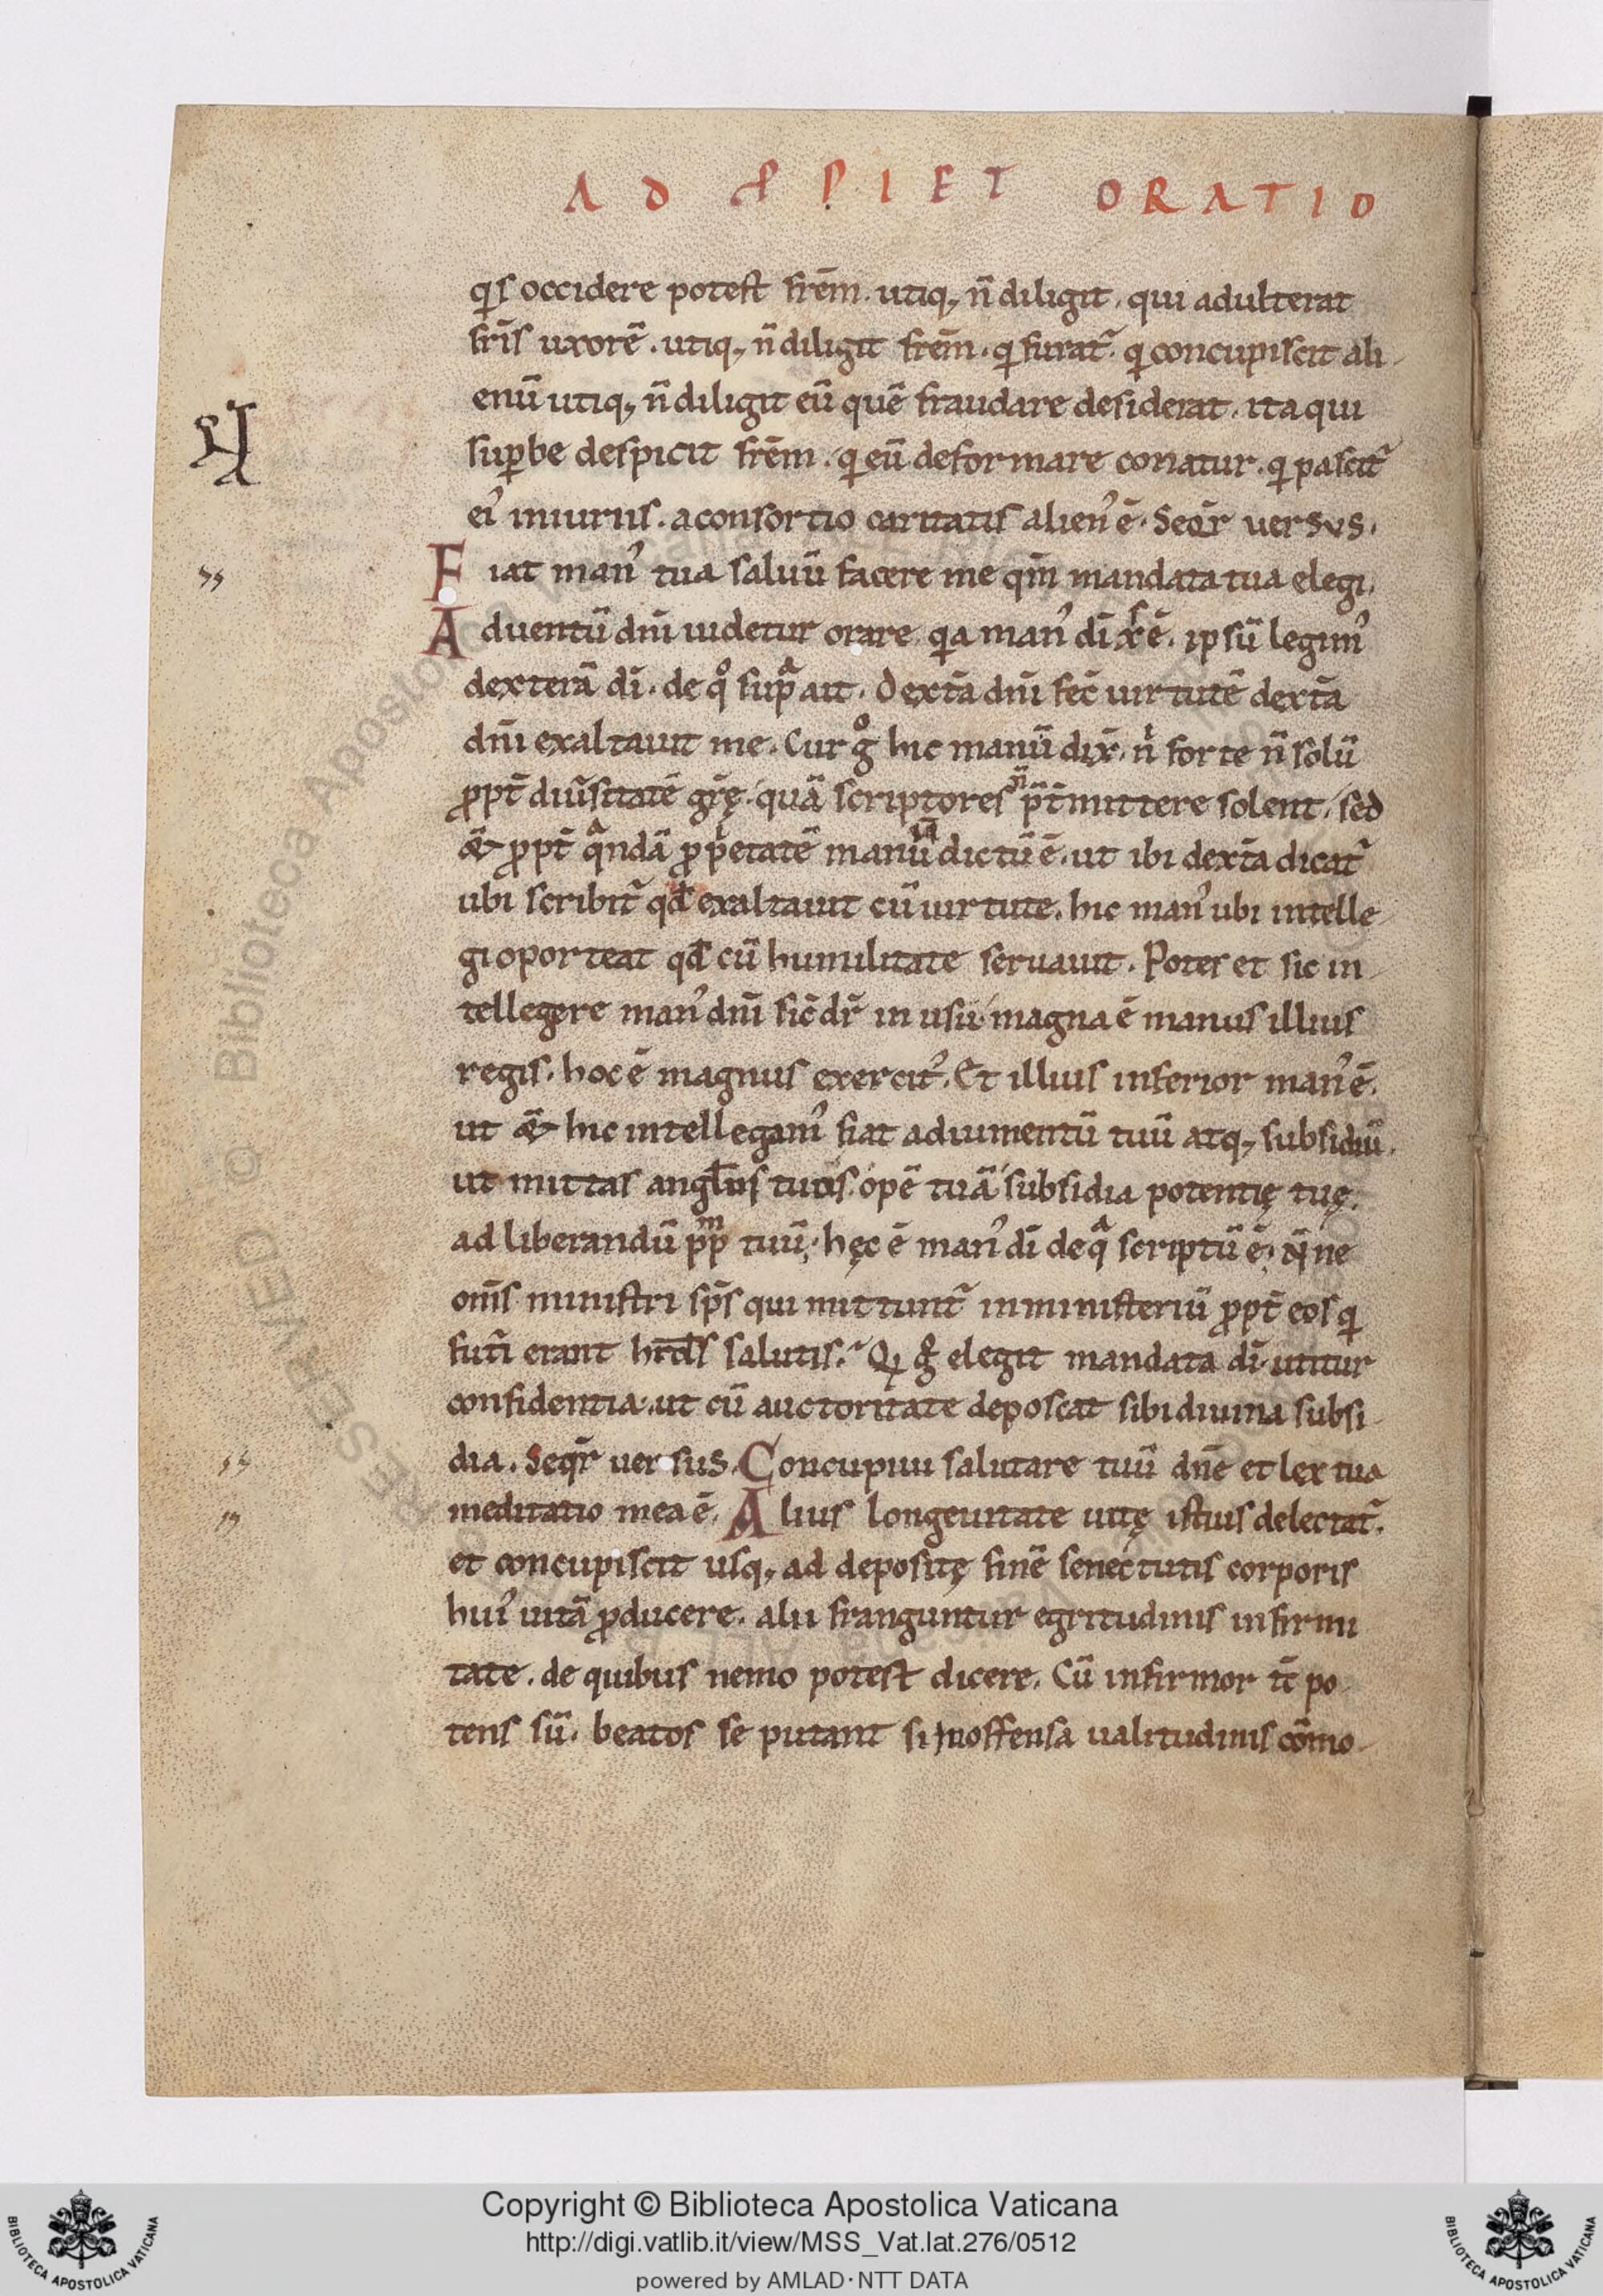 A D P P I E T ORATIO
qis occidere potest frēm. utiq; n̄ diligit. qui adulterat
fr̄is uxorē. utiq; n̄ diligit frēm. qi furat̄. qi concupiscit ali-
enū utiq; n̄ diligit eū quē fraudare desiderat. ita qui
suꝑbe despicit frēm. qi eū deformare conatur. qi pascit̄
ei' iniuriis. a consortio caritatis alien' ē. Seqr̄ versvs.
Fiat man' tua saluū facere me qm̄ mandata tua elegi.
Aduentū dn̄i uidetur orare qia man' dī xr̄ ē. ipsū legim'
dexterā dī. de qo supra ait. Dext̄a dn̄i fec̄ uirtutē dext̄a
dn̄i exaltauit me. Cur go hic manū dix̄. nͥ forte n̄ solū
ꝓpt̄ diūsitatē gr̄ę. quā scriptores n̄ p̄t̄mittere solent. sed
& ꝓpt̄ qandā ꝓpͥetatē manū dictū ē. ut ibi dext̄a dicat̄
ubi scribit̄ qd̄ exaltauit cū uirtute. hic man' ubi intelle-
gi oporteat qd̄ cū humilitate seruauit. Potes et sic in-
tellegere man' dn̄i sic̄ dr̄ in usu. magna ē manus illius
regis. hoc ē magnus exercit'. Et illius inferior man' ē.
ut & hic intellegam' fiat adiumentū tuū atq; subsidiū.
ut mittas angl̄os tuos. opē tuā subsidia potentię tuę.
ad liberandū pp̄m tuū. hęc ē man' dī de qa scriptū ē. Nͥne
om̄s ministri sp̄s qui mittunt̄ in ministeriū ꝓpt̄ eos qi
fut̄i erant hr̄ds salutis. Qi go elegit mandata dī. utitur
confidentia. ut cū auctoritate deposcat sibi diuina subsi-
dia. Seqr̄ uersus. Concupiui salutare tuū dn̄e et lex tua
meditatio mea ē. Alius longeuitate uitę istius delectat̄.
et concupiscit usq; ad depositę finē senectutis corporis
hui' uitā ꝓducere. alii franguntur egritudinis infirmi
tate. de quibus nemo potest dicere. Cū infirmor tc̄ po-
tens sū. beatos se putant si inoffensa ualitudinis cōmo-
Copyright © Biblioteca Apostolica Vaticana
http://digi.vatlib.it/view/MSS_Vat.lat.276/0512
powered by AMLAD·NTT DATA
BIBLIOTECA APOSTOLICA VATICANA
BIBLIOTECA APOSTOLICA VATICANA